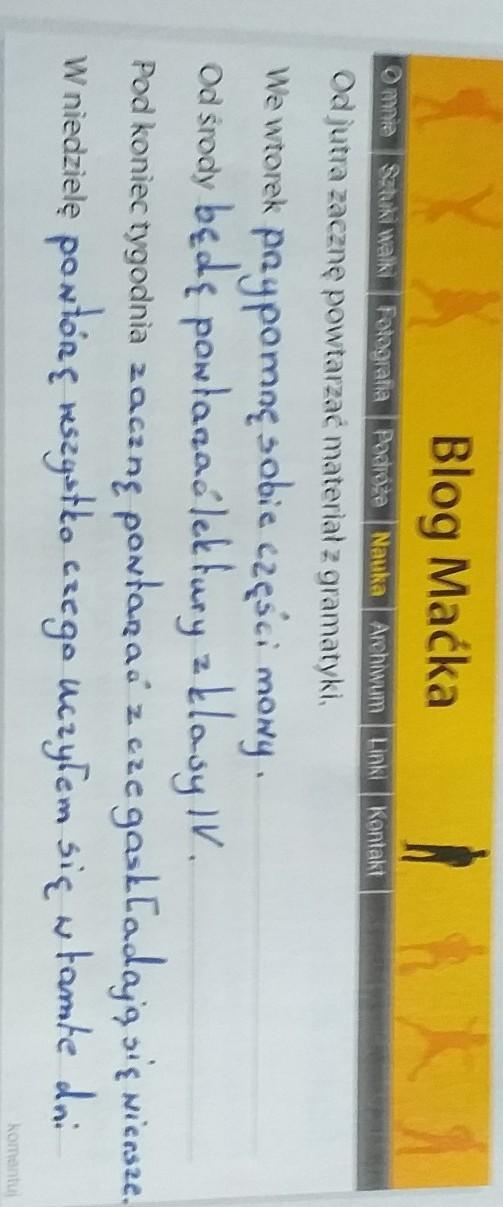 Blog Maćka
O mnie | Sztuki walki | Fotografia | Podróże | Nauka | Archiwum | Linki | Kontakt
Od jutra zacznę powtarzać materiał z gramatyki.
We wtorek przypomnę sobie części mowy.
Od środy będę powtarzać lektury z klasy IV.
Pod koniec tygodnia zacznę powtarzać z czego składają się wiersze.
W niedzielę powtórzę wszystko czego uczyłem się w tamte dni
komentuj